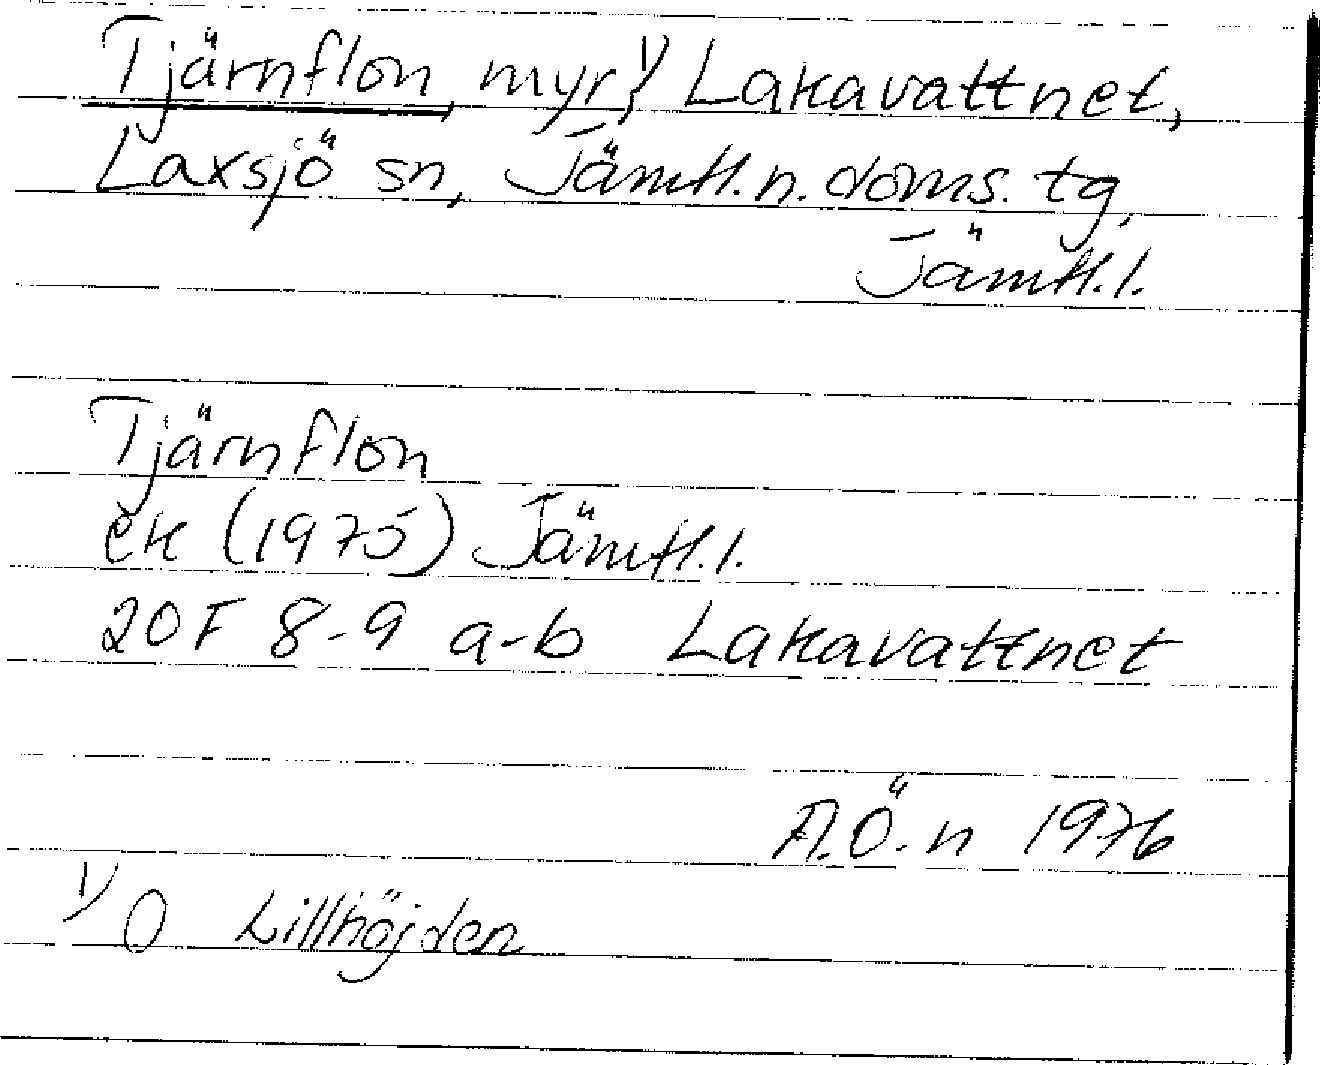 Tjärnflon, myr,¹⁾ Lakavattnet,
Laxsjö sn, Jämtl. n. doms. tg,
Jämtl. l.
Tjärnflon
ek (1975) Jämtl. l.
20F 8-9 a-b Lakavattnet
A.Ö.n 1976
¹⁾ O Lillhöjden